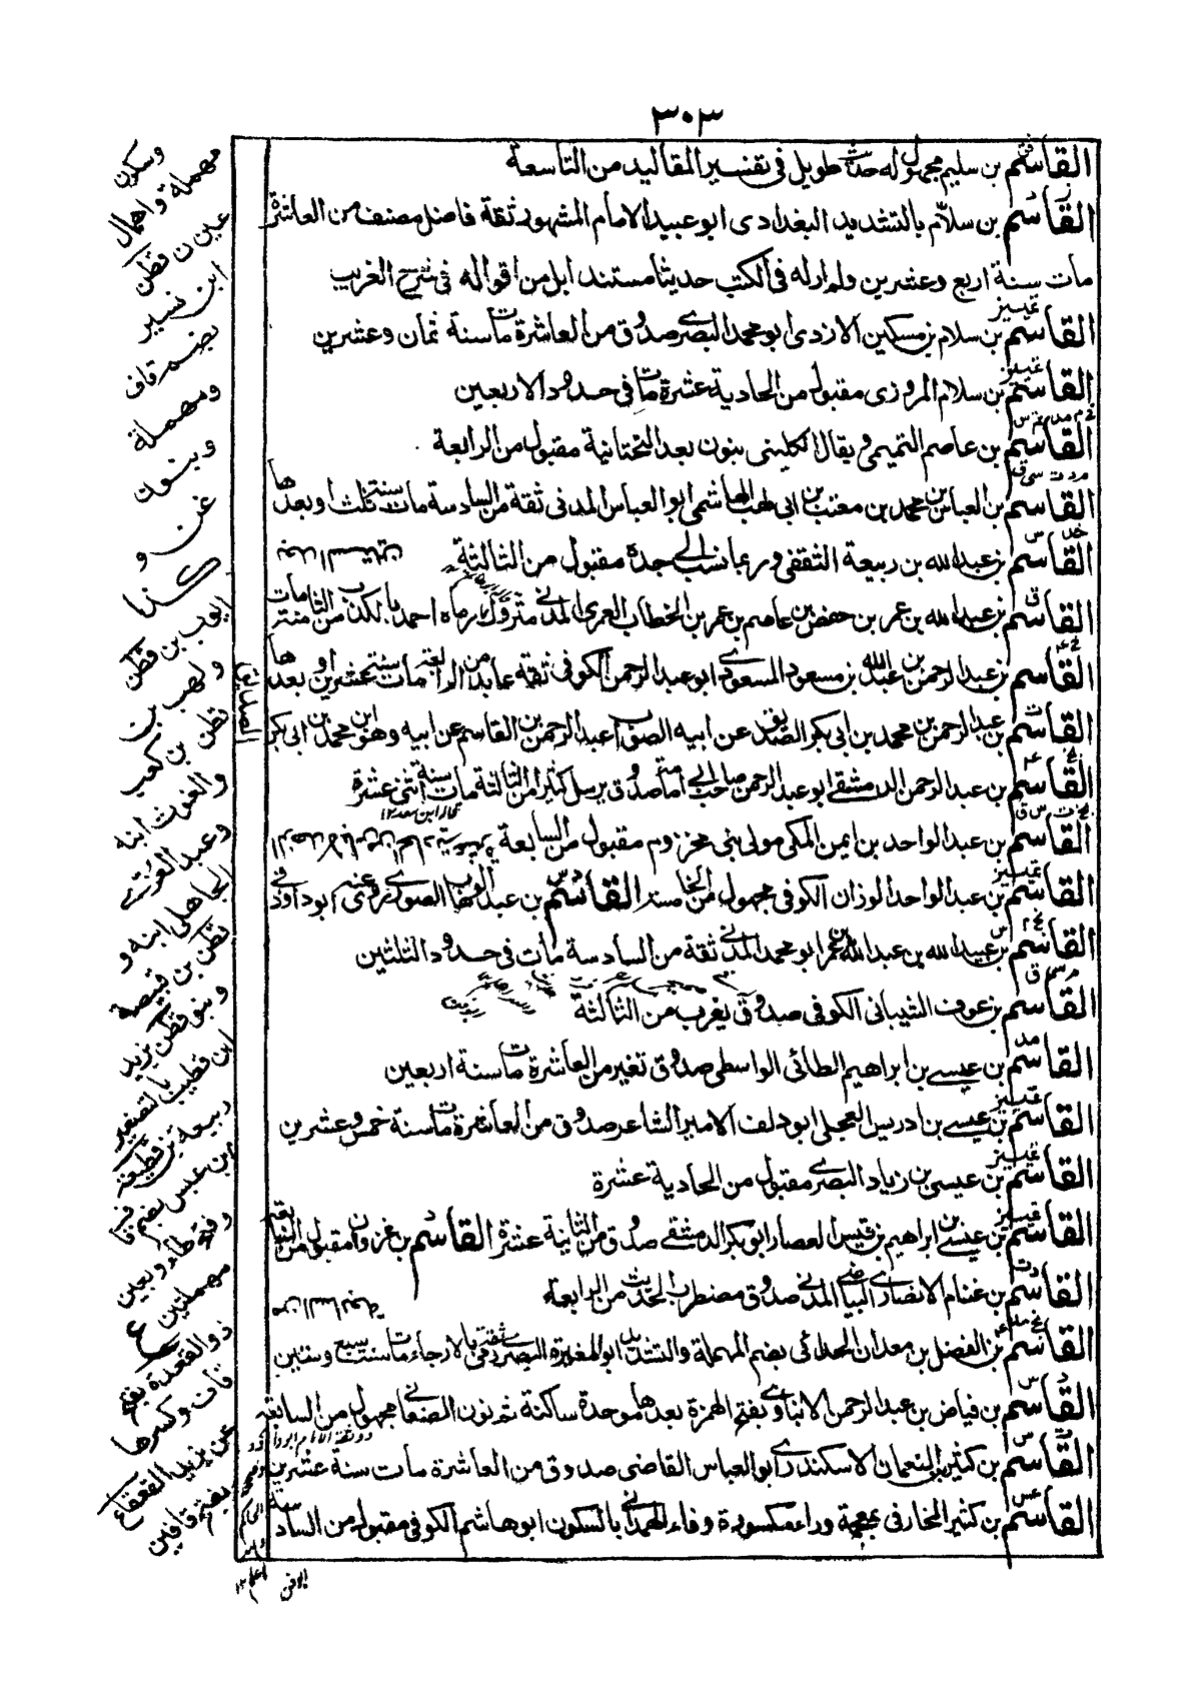 ٣٠٣
القاسم بن سليم مجهول له حديث طويل في تفسير المقاليد من التاسعة
القاسم بن سلام بالتشديد البغدادي ابو عبيد الامام المشهور ثقة فاضل مصنف من العاشرة
مات سنة اربع وعشرين ولم ار له في الكتب حديثا مسندا بل من اقواله في شرح الغريب
تمييز
القاسم بن سلام بن مسكين الازدي ابو محمد البصري صدوق من العاشرة مات سنة ثمان وعشرين
تمييز
القاسم بن سلام المروزي مقبول من الحادية عشرة مات في حدود الاربعين
القاسم بن عاصم التميمي ويقال الكليني بنون بعد التحتانية مقبول من الرابعة
القاسم بن العباس بن محمد بن معتب بن ابي لهب الهاشمي ابو العباس المدني ثقة من السادسة مات سنة ثلث او بعدها
القاسم بن عبد الله بن ربيعة الثقفي وربما نسب الى جده مقبول من الثالثة
القاسم بن عبد الله بن عمر بن حفص بن عاصم بن عمر بن الخطاب العمري المدني متروك رماه احمد بالكذب من الثامنة مات
القاسم بن عبد الرحمن بن عبد الله بن مسعود المسعودي ابو عبد الرحمن الكوفي ثقة عابد من الرابعة مات سنة عشرين او بعدها
القاسم بن عبد الرحمن بن محمد بن ابي بكر الصديق عن ابيه الصواب عبد الرحمن بن القاسم عن ابيه وهو ابن محمد بن ابي بكر
الصديق
القاسم بن عبد الرحمن الدمشقي ابو عبد الرحمن صاحب ابي امامة صدوق يرسل كثيرا من الثالثة مات سنة اثنتي عشرة
القاسم بن عبد الواحد بن ايمن المكي مولى بني مخزوم مقبول من السابعة
تمييز
القاسم بن عبد الواحد الوزان الكوفي مجهول من الخامسة القاسم بن عبد الوهاب الصوري روى عنه ابو داود
القاسم بن عبيد الله بن عبد الله بن عمر ابو محمد المدني ثقة من السادسة مات في حدود الثلثين
القاسم بن عوف الشيباني الكوفي صدوق يغرب من الثالثة
القاسم بن عيسى بن ابراهيم الطائي الواسطي صدوق تغير من العاشرة مات سنة اربعين
تمييز
القاسم بن عيسى بن ادريس العجلي ابو دلف الامير الشاعر صدوق من العاشرة مات سنة خمس وعشرين
تمييز
القاسم بن عيسى بن زياد البصري مقبول من الحادية عشرة
تمييز
القاسم بن عيسى بن ابراهيم بن قيس العصار ابو بكر الدمشقي صدوق من الثانية عشرة القاسم بن غزوان مقبول من
القاسم بن غنام الانصاري البياضي المدني صدوق مضطرب الحديث من الرابعة
القاسم بن الفضل بن معدان الحداني بضم المهملة والتشديد ابو المغيرة البصري ثقة رمي بالارجاء مات سنة سبع وستين
القاسم بن فياض بن عبد الرحمن الابناوي بفتح الهمزة بعدها موحدة ساكنة ثم نون الصنعاني مجهول من السابعة
القاسم بن كثير بن النعمان الاسكندري ابو العباس القاضي صدوق من العاشرة مات سنة عشرين
القاسم بن كثير الخارفي بمعجمة وراء مكسورة وفاء الهمداني بالسكون ابو هاشم الكوفي مقبول من السادسة
وسكون
مهملة واهمال
عين ن قطن
ابن نسير
بضم قاف
ومهملة
وبنون
عن و
كذا
ايوب بن قطن
ولهب بن
قطن بن كعب
والغوث ابنه
وعبد العزى
الجاهلي ابنه و
قطن بن قبيصة
وبنو قطن يزيد
ابن قطيب بالتصغير
ربيعة بن قطيعة
ابن عبس بضم قاف
وفتح طاء وبعين
مهملتين
ع
ذو القعدة بفتح
قاف وكسرها
عن يزيد القعقاع
بفتح قافين